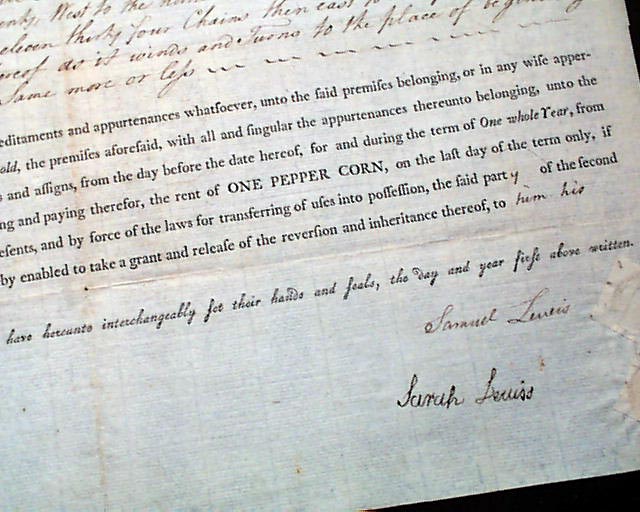 West to the
eleven thirty four Chains then east
as it winds and Turns to the place of
Same more or leſs
editaments and appurtenances whatſoever, unto the ſaid premiſes belonging, or in any wiſe apper-
old, the premiſes aforeſaid, with all and ſingular the appurtenances thereunto belonging, unto the
s and aſſigns, from the day before the date hereof, for and during the term of One whole Year, from
ng and paying therefor, the rent of ONE PEPPER CORN, on the laſt day of the term only, if
eſents, and by force of the laws for transferring of uſes into poſſeſſion, the said party of the ſecond
by enabled to take a grant and releaſe of the reverſion and inheritance thereof, to him his
have hereunto interchangeably ſet their hands and ſeals, the day and year firſt above written.
Samuel Lewis
Sarah Lewiss